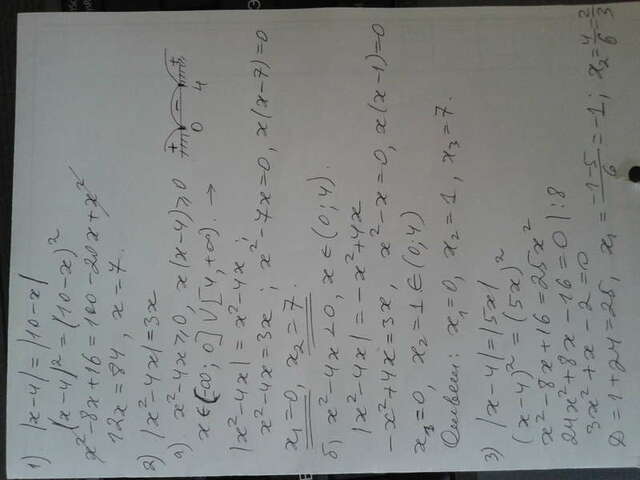 1) |x-4| = |10-x|
(x-4)² = (10-x)²
x²-8x+16=100-20x+x²
12x=84, x=7.
2) |x²-4x|=3x
а) x²-4x≥0, x(x-4)≥0 + - + 0 4
x∈(-∞; 0]∪[4,+∞). →
|x²-4x|=x²-4x;
x²-4x=3x; x²-7x=0, x(x-7)=0
x₁=0, x₂=7.
б) x²-4x<0, x∈(0;4).
|x²-4x|=-x²+4x
-x²+4x=3x, x²-x=0, x(x-1)=0
x₃=0, x₂=1∈(0;4)
Ответ: x₁=0, x₂=1, x₃=7.
3) |x-4|=|5x|
(x-4)²=(5x)²
x²-8x+16=25x²
24x²+8x-16=0 |:8
3x²+x-2=0
D=1+24=25, x₁=(-1-5)/6=-1; x₂=4/6=2/3